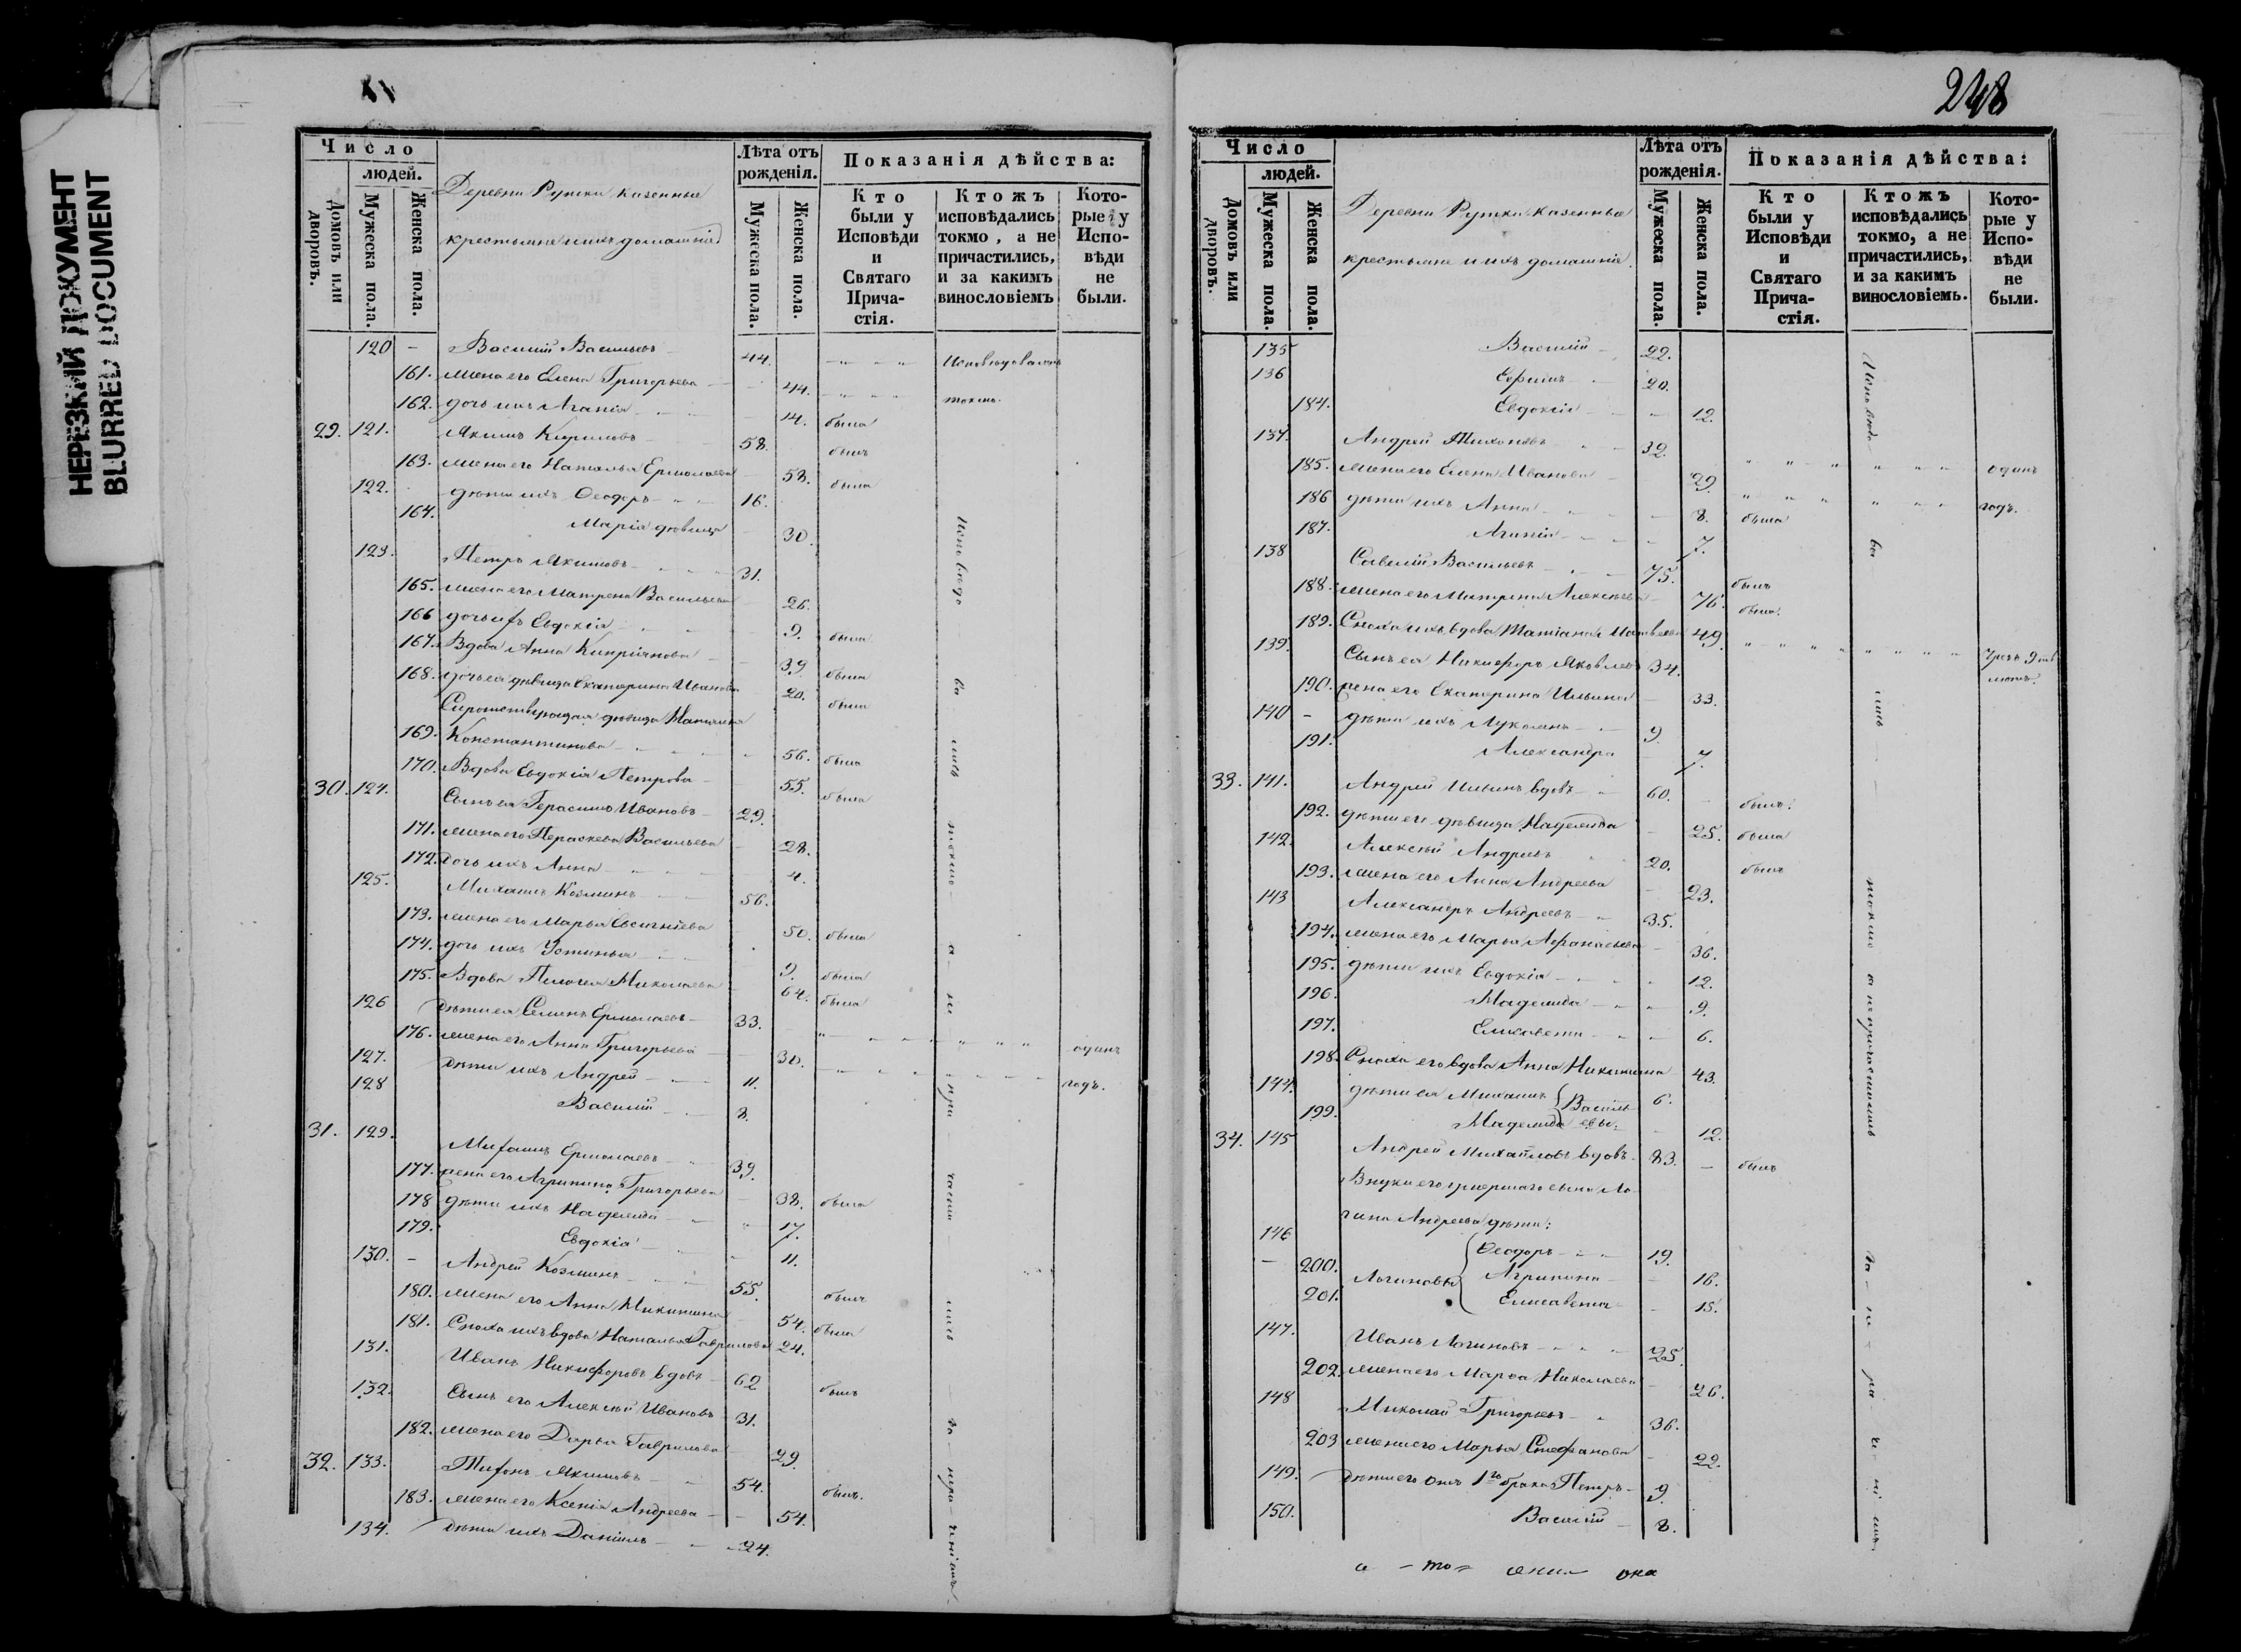 НЕРЕЗКИЙ ДОКУМЕНТ
BLURRED DOCUMENT
Число
людей.
Домовъ или дворовъ.
Мужеска пола.
Женска пола.
Деревни Рутки казенные
крестьяне и ихъ домашніе
Лѣта отъ рожденія.
Мужеска пола.
Женска пола.
Показанія дѣйства:
Кто были у Исповѣди и Святаго Прича-стія.
Ктожъ исповѣдались токмо, а не причастились, и за какимъ винословіемъ
Кото-рые у Испо-вѣди не были.
120 - Василій Васильевъ 44.
161. жена его Елена Григорьева 44. токмо
162. дочь ихъ Агапія 14. была
29. 121. Якимъ Кириловъ 58. былъ
163. жена его Наталья Ермолаева 58. была
122. дѣти ихъ Ѳеодоръ 16.
164. Марія дѣвица 30.
123. Петръ Якимовъ 31.
165. жена его Матрена Васильева 26.
166 дочь ихъ Евдокія 9. была
167. Вдова Анна Кипріянова 39 была
168. дочь ея дѣвица Екатерина Иванова 20. была
дѣвица
169. Константинова 56. была
170. Вдова Евдокія Петрова 55. была
30. 124. Сынъ ея Герасимъ Ивановъ 29.
171. жена его Параскева Васильева 28.
172. дочь ихъ Анна 4.
125. Михаилъ Козминъ 56.
173. жена его Марья Евсигнѣева 50. была
174. дочь ихъ Устинья 9. была
175. Вдова Пелагея Николаева 64. была
126 дѣти ея Семенъ Ермолаевъ 33.
176. жена его Анна Григорьева 30. одинъ
127. дѣти ихъ Андрей 11. годъ.
128 Василій 8.
31. 129. Михаилъ Ермолаевъ 39.
177. жена его Агрипина Григорьева 38. была
178 дѣти ихъ Надежда 17.
179. Евдокія 11.
130. - Андрей Козминъ 55. былъ
180. жена его Анна Никитина 54. была
181. Сноха ихъ вдова Наталья Гаврилова 24.
131. Иванъ Никифоровъ вдовъ 62 былъ
132. Сынъ его Алексѣй Ивановъ 31.
182. жена его Дарья Гаврилова 29.
32. 133. Тихонъ Якимовъ 54. былъ.
183. жена его Ксенія Андреева 54.
134. дѣти ихъ Даніилъ 24.
248
Число
людей.
Домовъ или дворовъ.
Мужеска пола.
Женска пола.
Деревни Рутки казенные
крестьяне и ихъ домашніе
Лѣта отъ рожденія.
Мужеска пола.
Женска пола.
Показанія дѣйства:
Кто были у Исповѣди и Святаго Прича-стія.
Ктожъ исповѣдались токмо, а не причастились, и за какимъ винословіемъ.
Кото-рые у Испо-вѣди не были.
135 Василій 22.
136 Ефимъ 20.
184. Евдокія 12.
137. Андрей Тихоновъ 32. одинъ
185. жена его Елена Иванова 29. годъ.
186 дѣти ихъ Анна 8. была
187. Агапія 7.
138 Савелій Васильевъ 75. былъ
188. жена его Матрена Алексѣева 76. была.
189. Сноха ихъ вдова Татіана Матвѣева 49.
139. Сынъ ея Никифоръ Яковлевъ 34.
190. жена его Екатерина Ильина 33.
140 - дѣти ихъ Лукіянъ 9.
191. Александра 7.
33. 141. Андрей Ильинъ вдовъ 60. былъ.
192. дѣти его дѣвица Надежда 25. была
142. Алексѣй Андреевъ 20. былъ
193. жена его Анна Андреева 23.
143 Александръ Андреевъ 35.
194. жена его Марья Афанасьева 36.
195. дѣти ихъ Евдокія 12.
196. Надежда 9.
197. Елисавета 6.
198. Сноха его вдова Анна Никитина 43.
144. дѣти ея Михаилъ Василь- 6.
199. Надежда евы. 12.
34. 145 Андрей Михайловъ вдовъ 83. былъ
Внуки его умершаго сына Ло-
гина Андреева дѣти:
146 Ѳеодоръ 19.
200. Логиновы Агрипина 16.
201. Елисавета 15.
147. Иванъ Логиновъ 25.
202. жена его Марѳа Николаева 26.
148 Николай Григорьевъ 36.
203 жена его Марья Стефанова 22.
149. дѣти его отъ 1го брака Петръ 9.
150. Василій 8.